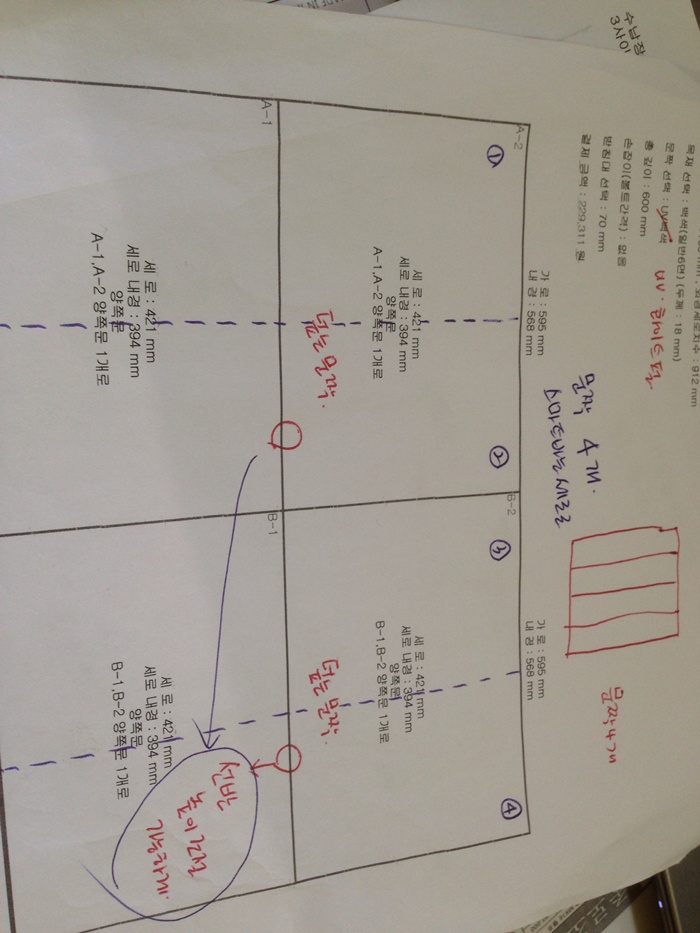 수납장
외경세로치수 : 912 mm
목재 선택 : 백색(일반6면) (두께 : 18 mm)
문짝 선택 : UV백색
UV·하이그로시
총 깊이 : 600 mm
손잡이(볼트간격) : 없음
받침대 선택 : 70 mm
결제 금액 : 229,311 원
문짝 4개.
문짝 4개
A-2
가 로 : 595 mm
내 경 : 568 mm
①
②
세 로 : 421 mm
세로 내경 : 394 mm
양쪽문
A-1,A-2 양쪽문 1개로
덮는문짝.
B-2
가 로 : 595 mm
내 경 : 568 mm
③
④
세 로 : 421 mm
세로 내경 : 394 mm
양쪽문
B-1,B-2 양쪽문 1개로
덮는문짝.
A-1
세 로 : 421 mm
세로 내경 : 394 mm
양쪽문
A-1,A-2 양쪽문 1개로
B-1
세 로 : 421 mm
세로 내경 : 394 mm
양쪽문
B-1,B-2 양쪽문 1개로
가능하게.